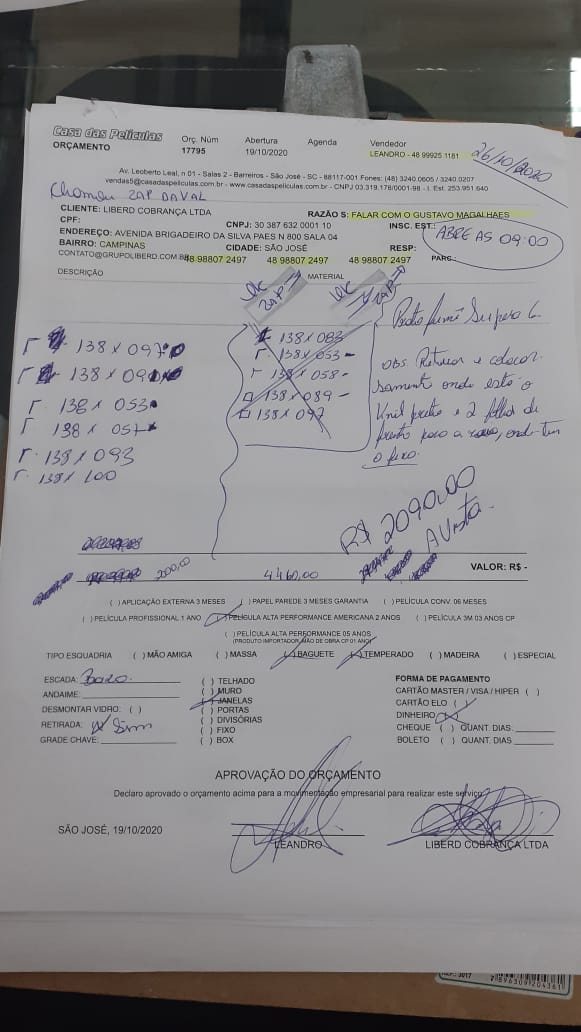 Casa das Películas Orç. Núm Abertura Agenda Vendedor
ORÇAMENTO 17795 19/10/2020 LEANDRO - 48 99925 1181 26/10/2020
Av. Leoberto Leal, n 01 - Salas 2 - Barreiros - São José - SC - 88117-001 Fones: (48) 3240.0605 / 3240.0207
vendas5@casadaspeliculas.com.br - www.casadaspeliculas.com.br - CNPJ 03.319.178/0001-98 - I. Est. 253.951.640
Chamou ZAP DAVAL
CLIENTE: LIBERD COBRANÇA LTDA RAZÃO S: FALAR COM O GUSTAVO MAGALHAES
CPF: CNPJ: 30 387 632 0001 10 INSC. EST.:
ENDEREÇO: AVENIDA BRIGADEIRO DA SILVA PAES N 800 SALA 04 ABRE AS 09:00
BAIRRO: CAMPINAS CIDADE: SÃO JOSÉ RESP:
CONTATO@GRUPOLIBERD.COM.BR 48 98807 2497 48 98807 2497 48 98807 2497 PARC.:
DESCRIÇÃO MATERIAL
ZAP
138 x 083
138 x 097
138 x 053
138 x 090
138 x 058
138 x 053
138 x 089
138 x 057
138 x 097
138 x 093
138 x 100
obs. Retirar e colocar
onde esta o
preto e 2 folha de
onde tem
o fixo.
R$ 2090,00
A Vista.
200,00 4460,00 VALOR: R$ -
( ) APLICAÇÃO EXTERNA 3 MESES ( ) PAPEL PAREDE 3 MESES GARANTIA ( ) PELÍCULA CONV. 06 MESES
( ) PELÍCULA PROFISSIONAL 1 ANO ( ) PELÍCULA ALTA PERFORMANCE AMERICANA 2 ANOS ( ) PELÍCULA 3M 03 ANOS CP
( ) PELÍCULA ALTA PERFORMANCE 05 ANOS
(PRODUTO IMPORTADO MÃO DE OBRA CP 01 ANO)
TIPO ESQUADRIA ( ) MÃO AMIGA ( ) MASSA ( ) BAGUETE ( ) TEMPERADO ( ) MADEIRA ( ) ESPECIAL
ESCADA: ( ) TELHADO FORMA DE PAGAMENTO
ANDAIME: ( ) MURO CARTÃO MASTER / VISA / HIPER ( )
( ) JANELAS CARTÃO ELO ( )
DESMONTAR VIDRO: ( ) ( ) PORTAS DINHEIRO (X)
RETIRADA: Sim ( ) DIVISÓRIAS CHEQUE ( ) QUANT. DIAS:
( ) FIXO
GRADE CHAVE: ( ) BOX BOLETO ( ) QUANT. DIAS
APROVAÇÃO DO ORÇAMENTO
Declaro aprovado o orçamento acima para a movimentação empresarial para realizar este serviço.
SÃO JOSÉ, 19/10/2020
LEANDRO LIBERD COBRANÇA LTDA
2 896309 204361